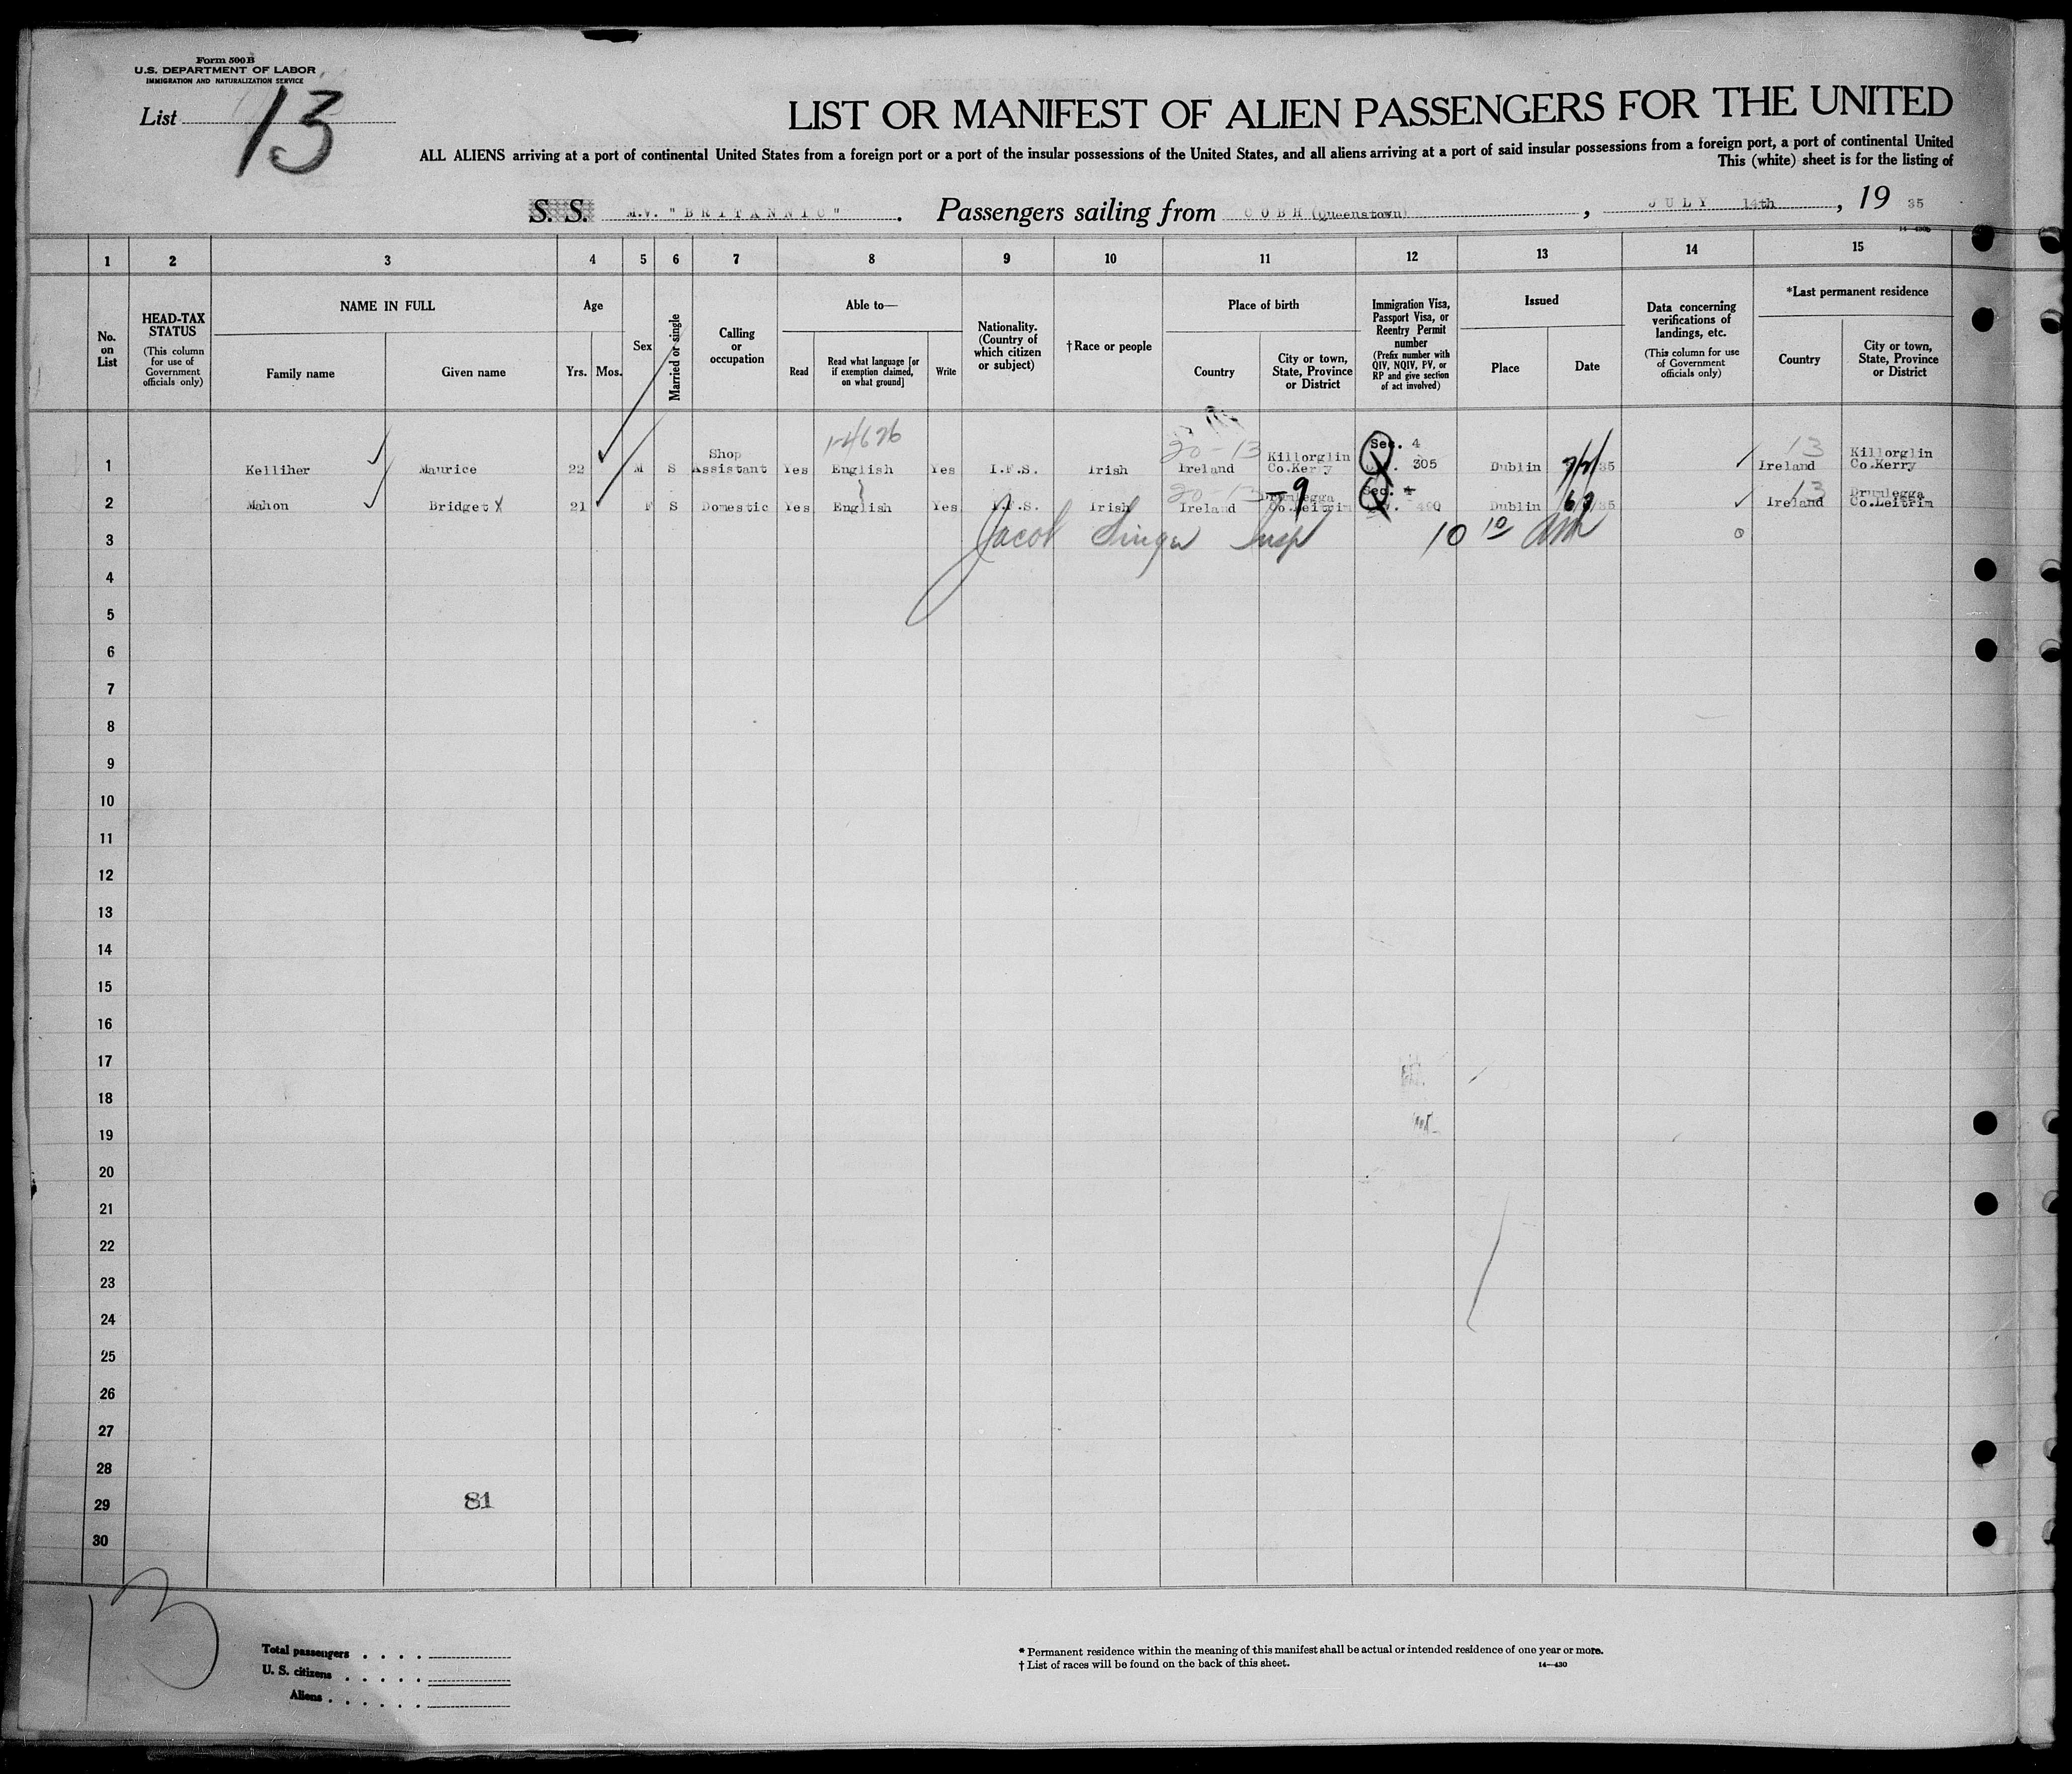 Form 500 B
U.S. DEPARTMENT OF LABOR
IMMIGRATION AND NATURALIZATION SERVICE
List 13
LIST OR MANIFEST OF ALIEN PASSENGERS FOR THE UNITED
ALL ALIENS arriving at a port of continental United States from a foreign port or a port of the insular possessions of the United States, and all aliens arriving at a port of said insular possessions from a foreign port, a port of continental United
This (white) sheet is for the listing of
S. S. M.V. "BRITANNIC" . Passengers sailing from COBH (Queenstown) , JULY 14th , 19 35
1 2 3 4 5 6 7 8 9 10 11 12 13 14 15
No. on List
HEAD-TAX STATUS
(This column for use of Government officials only)
NAME IN FULL
Family name
Given name
Age
Yrs.
Mos.
Sex
Married or single
Calling or occupation
Able to—
Read
Read what language [or if exemption claimed, on what ground]
Write
Nationality. (Country of which citizen or subject)
† Race or people
Place of birth
Country
City or town, State, Province or District
Immigration Visa, Passport Visa, or Reentry Permit number
(Prefix number with QIV, NQIV, PV, or RP and give section of act involved)
Issued
Place
Date
Data concerning verifications of landings, etc.
(This column for use of Government officials only)
*Last permanent residence
Country
City or town, State, Province or District
1-4626
20-13
Sec. 4
13
1 Kelliher Maurice 22 M S Shop Assistant Yes English Yes I.F.S. Irish Ireland Killorglin Co.Kerry 305 Dublin 35 Ireland Killorglin Co.Kerry
20-13
-9
Sec. 4
13
2 Mahon Bridget 21 F S Domestic Yes English Yes I.F.S. Irish Ireland Drumlegga Co.Leitrim Dublin 35 Ireland Drumlegga Co.Leitrim
3 Jacob Singer Insp 10 10 AM
4
5
6
7
8
9
10
11
12
13
14
15
16
17
18
19
20
21
22
23
24
25
26
27
28
29 81
30
13
Total passengers
U. S. citizens
Aliens
* Permanent residence within the meaning of this manifest shall be actual or intended residence of one year or more.
† List of races will be found on the back of this sheet.
14—430